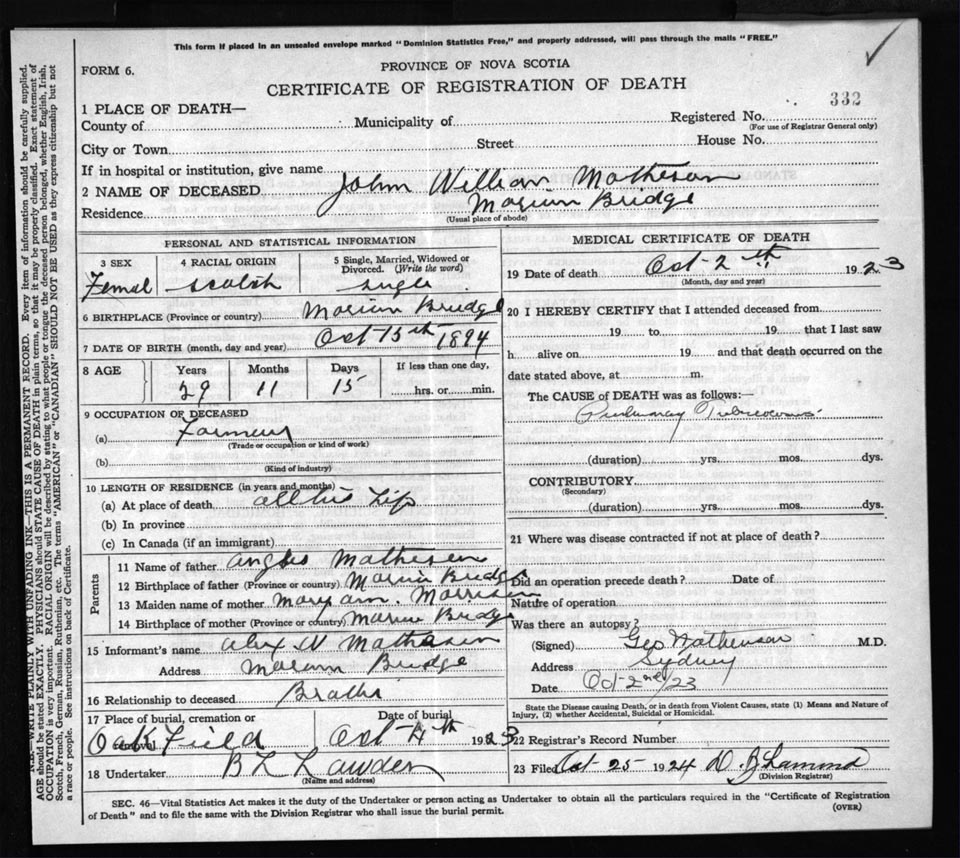 This form if placed in an unsealed envelope marked "Dominion Statistics Free," and properly addressed, will pass through the mails "FREE."
FORM 6.
PROVINCE OF NOVA SCOTIA
CERTIFICATE OF REGISTRATION OF DEATH
332
1 PLACE OF DEATH—
County of Municipality of Registered No.
(For use of Registrar General only)
City or Town Street House No.
If in hospital or institution, give name
2 NAME OF DECEASED John William Matheson
Residence Marion Bridge
(Usual place of abode)
PERSONAL AND STATISTICAL INFORMATION
3 SEX 4 RACIAL ORIGIN 5 Single, Married, Widowed or Divorced. (Write the word)
Femal scotish single
6 BIRTHPLACE (Province or country) Marion Bridge
7 DATE OF BIRTH (month, day and year) Oct 15th 1894
8 AGE Years Months Days If less than one day,
29 11 15 hrs. or min.
9 OCCUPATION OF DECEASED
(a) Farmer
(Trade or occupation or kind of work)
(b)
(Kind of industry)
10 LENGTH OF RESIDENCE (in years and months)
(a) At place of death all his Life
(b) In province
(c) In Canada (if an immigrant)
Parents
11 Name of father Angus Matheson
12 Birthplace of father (Province or country) Marion Bridge
13 Maiden name of mother Mary Ann Morrison
14 Birthplace of mother (Province or country) Marion Bridge
15 Informant's name Alex Matheson
Address Marion Bridge
16 Relationship to deceased Brother
17 Place of burial, cremation or removal Date of burial
Oakfield Oct 4th 1923
18 Undertaker B L
(Name and address)
MEDICAL CERTIFICATE OF DEATH
19 Date of death Oct-2th 1923
(Month, day and year)
20 I HEREBY CERTIFY that I attended deceased from
19 to 19 that I last saw
h alive on 19 and that death occurred on the
date stated above, at m.
The CAUSE OF DEATH was as follows:—
Pulmonary Tuberculosis
(duration) yrs. mos. dys.
CONTRIBUTORY
(Secondary)
(duration) yrs. mos. dys.
21 Where was disease contracted if not at place of death?
Did an operation precede death? Date of
Nature of operation
Was there an autopsy?
(Signed) Geo Matheson M.D.
Address Sydney
Date Oct-2nd/23
State the Disease causing Death, or in death from Violent Causes, state (1) Means and Nature of
Injury, (2) whether Accidental, Suicidal or Homicidal.
22 Registrar's Record Number
23 Filed Oct 25 1924
(Division Registrar)
SEC. 46—Vital Statistics Act makes it the duty of the Undertaker or person acting as Undertaker to obtain all the particulars required in the "Certificate of Registration
of Death" and to file the same with the Division Registrar who shall issue the burial permit.
(OVER)
N.B.—WRITE PLAINLY WITH UNFADING INK—THIS IS A PERMANENT RECORD. Every item of information should be carefully supplied.
AGE should be stated EXACTLY. PHYSICIANS should STATE CAUSE OF DEATH in plain terms, so that it may be properly classified. Exact statement of
OCCUPATION is very important. RACIAL ORIGIN will be described by stating to what people or tongue the deceased person belonged, whether English, Irish,
Scotch, French, German, Russian, Ruthenian, etc. The terms "AMERICAN" or "CANADIAN" SHOULD NOT BE USED as they express citizenship but not
a race or people. See instructions on back of Certificate.